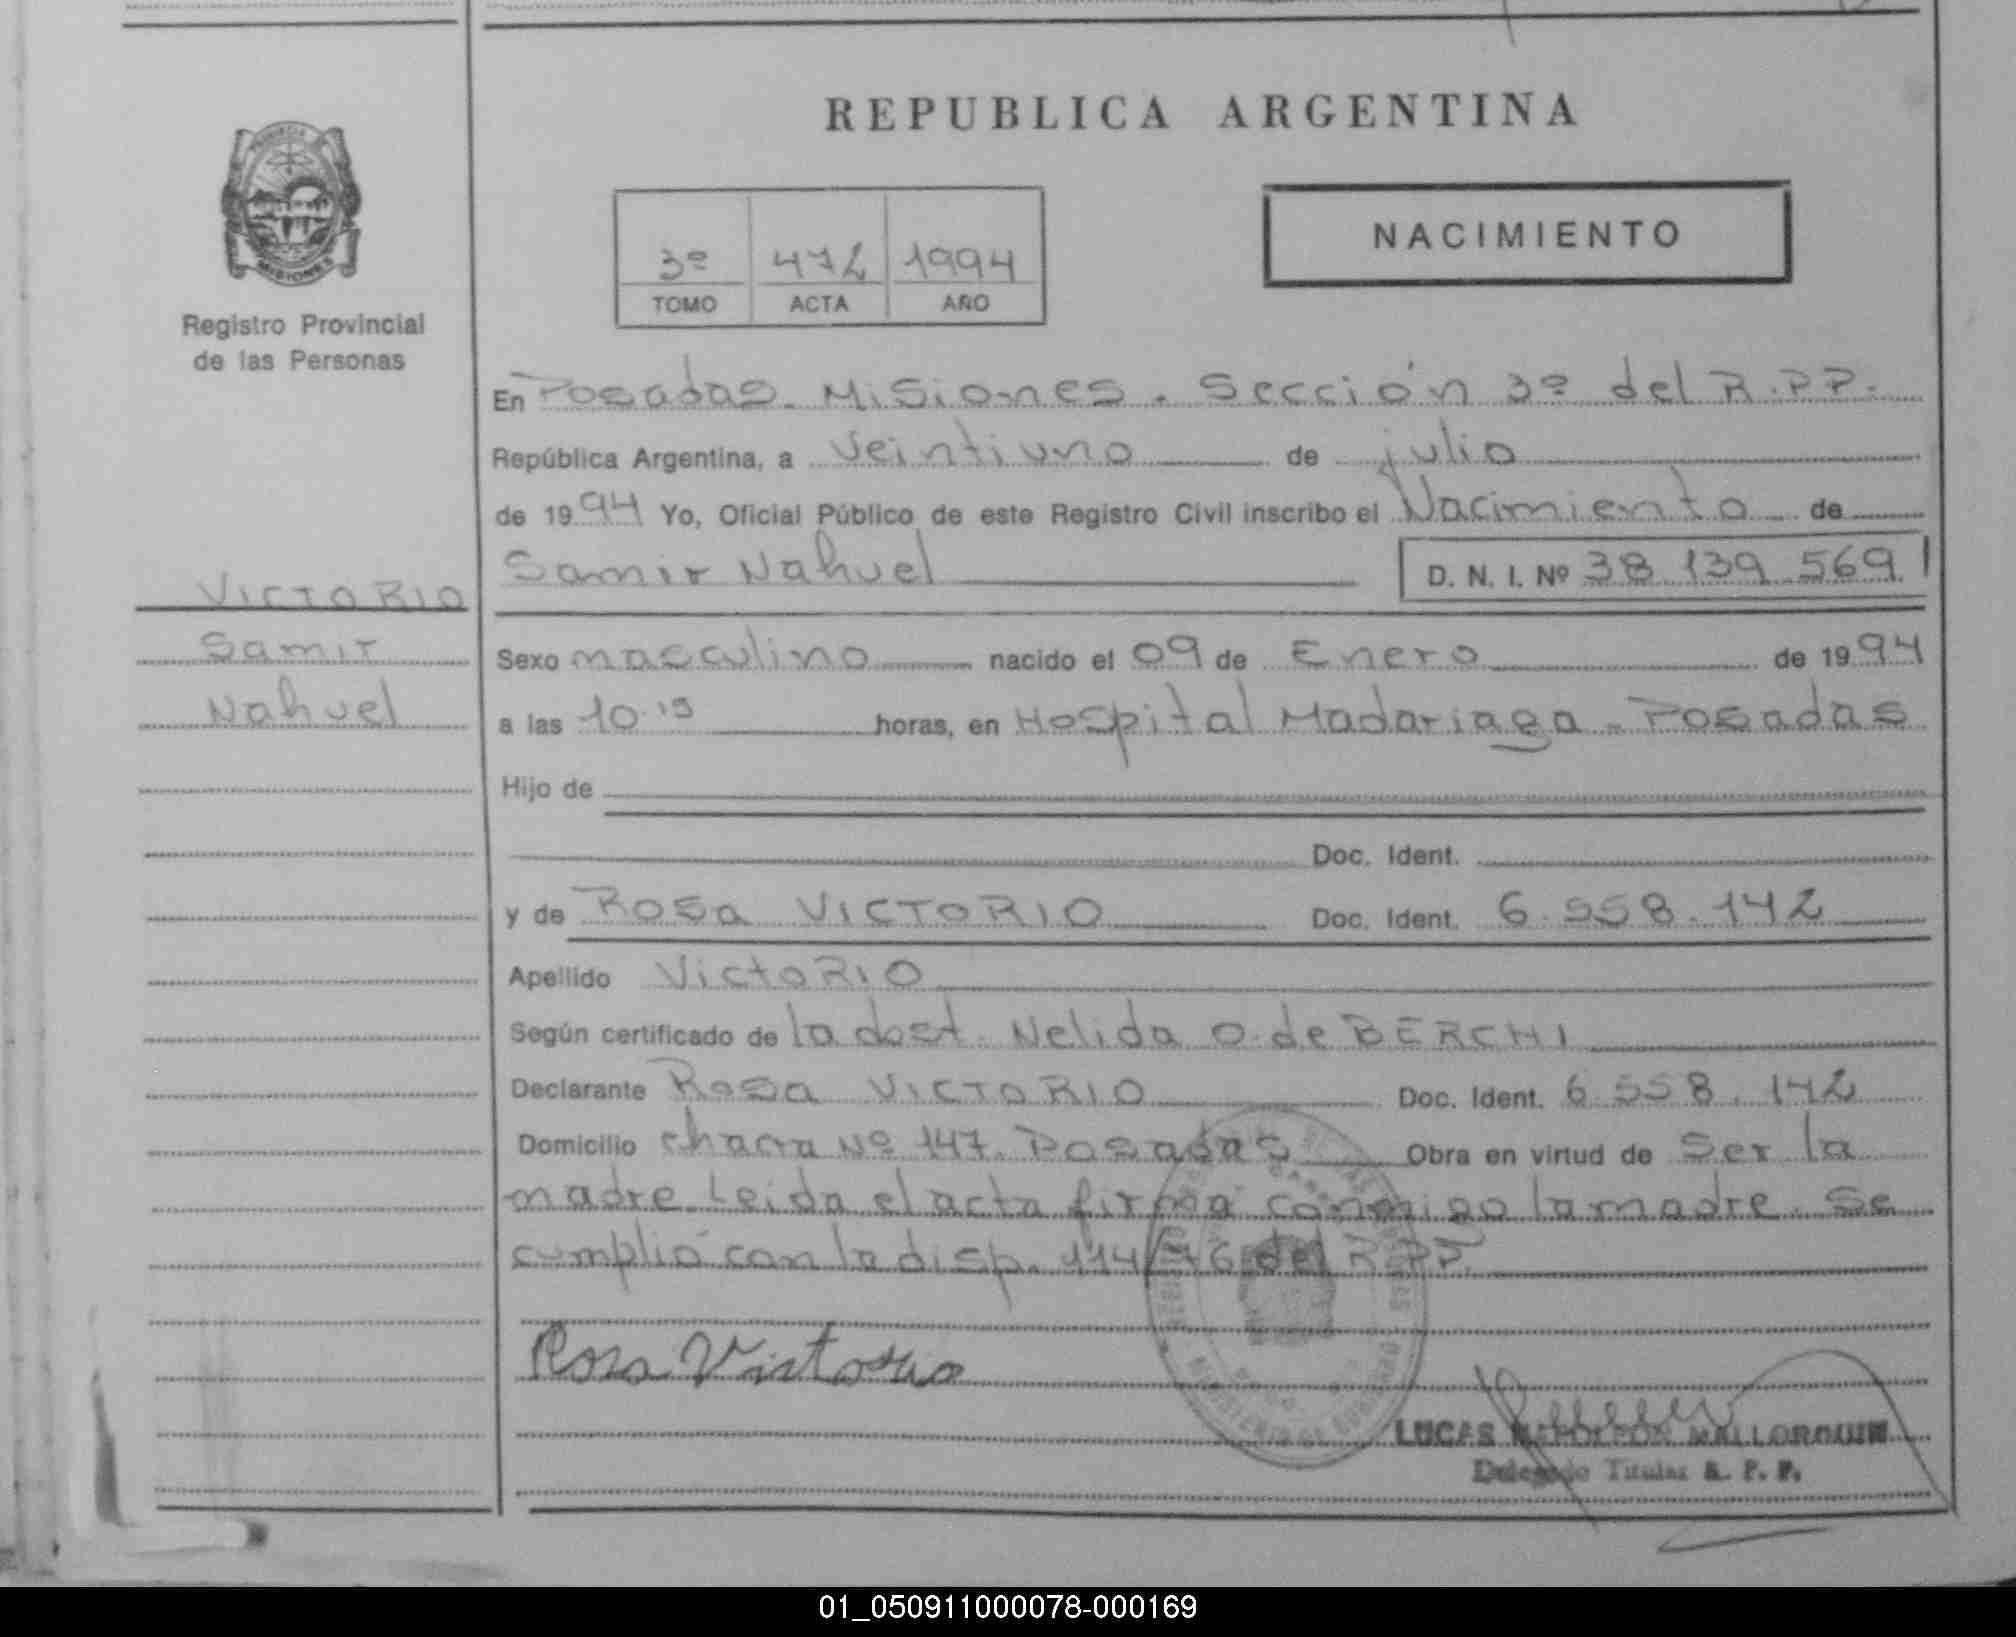 REPUBLICA ARGENTINA
PROVINCIA
MISIONES
Registro Provincial
de las Personas
3º 472 1994
TOMO ACTA AÑO
NACIMIENTO
En Posadas. Misiones. Sección 3º del R.P.P.
República Argentina, a veintiuno de julio
de 1994 Yo, Oficial Público de este Registro Civil inscribo el Nacimiento de
Samir Nahuel D. N. I. Nº 38 139 569
VICTORIO
Samir
Nahuel
Sexo masculino nacido el 09 de Enero de 1994
a las 10.15 horas, en Hospital Madariaga - Posadas
Hijo de
Doc. Ident.
y de Rosa VICTORIO Doc. Ident. 6.558.142
Apellido VictoRIO
Según certificado de la doct. Nelida O. de BERCHI
Declarante Rosa VICTORIO Doc. Ident. 6.558.142
Domicilio chacra Nº 147. Posadas Obra en virtud de Ser la
madre. Leida el acta firma conmigo la madre. Se
cumplió con la disp. 114/76 del R.P.P.
Rosa Victorio
LUCAS NAPOLEON MALLORQUIN
Delegado Titular R. P. P.
01_050911000078-000169